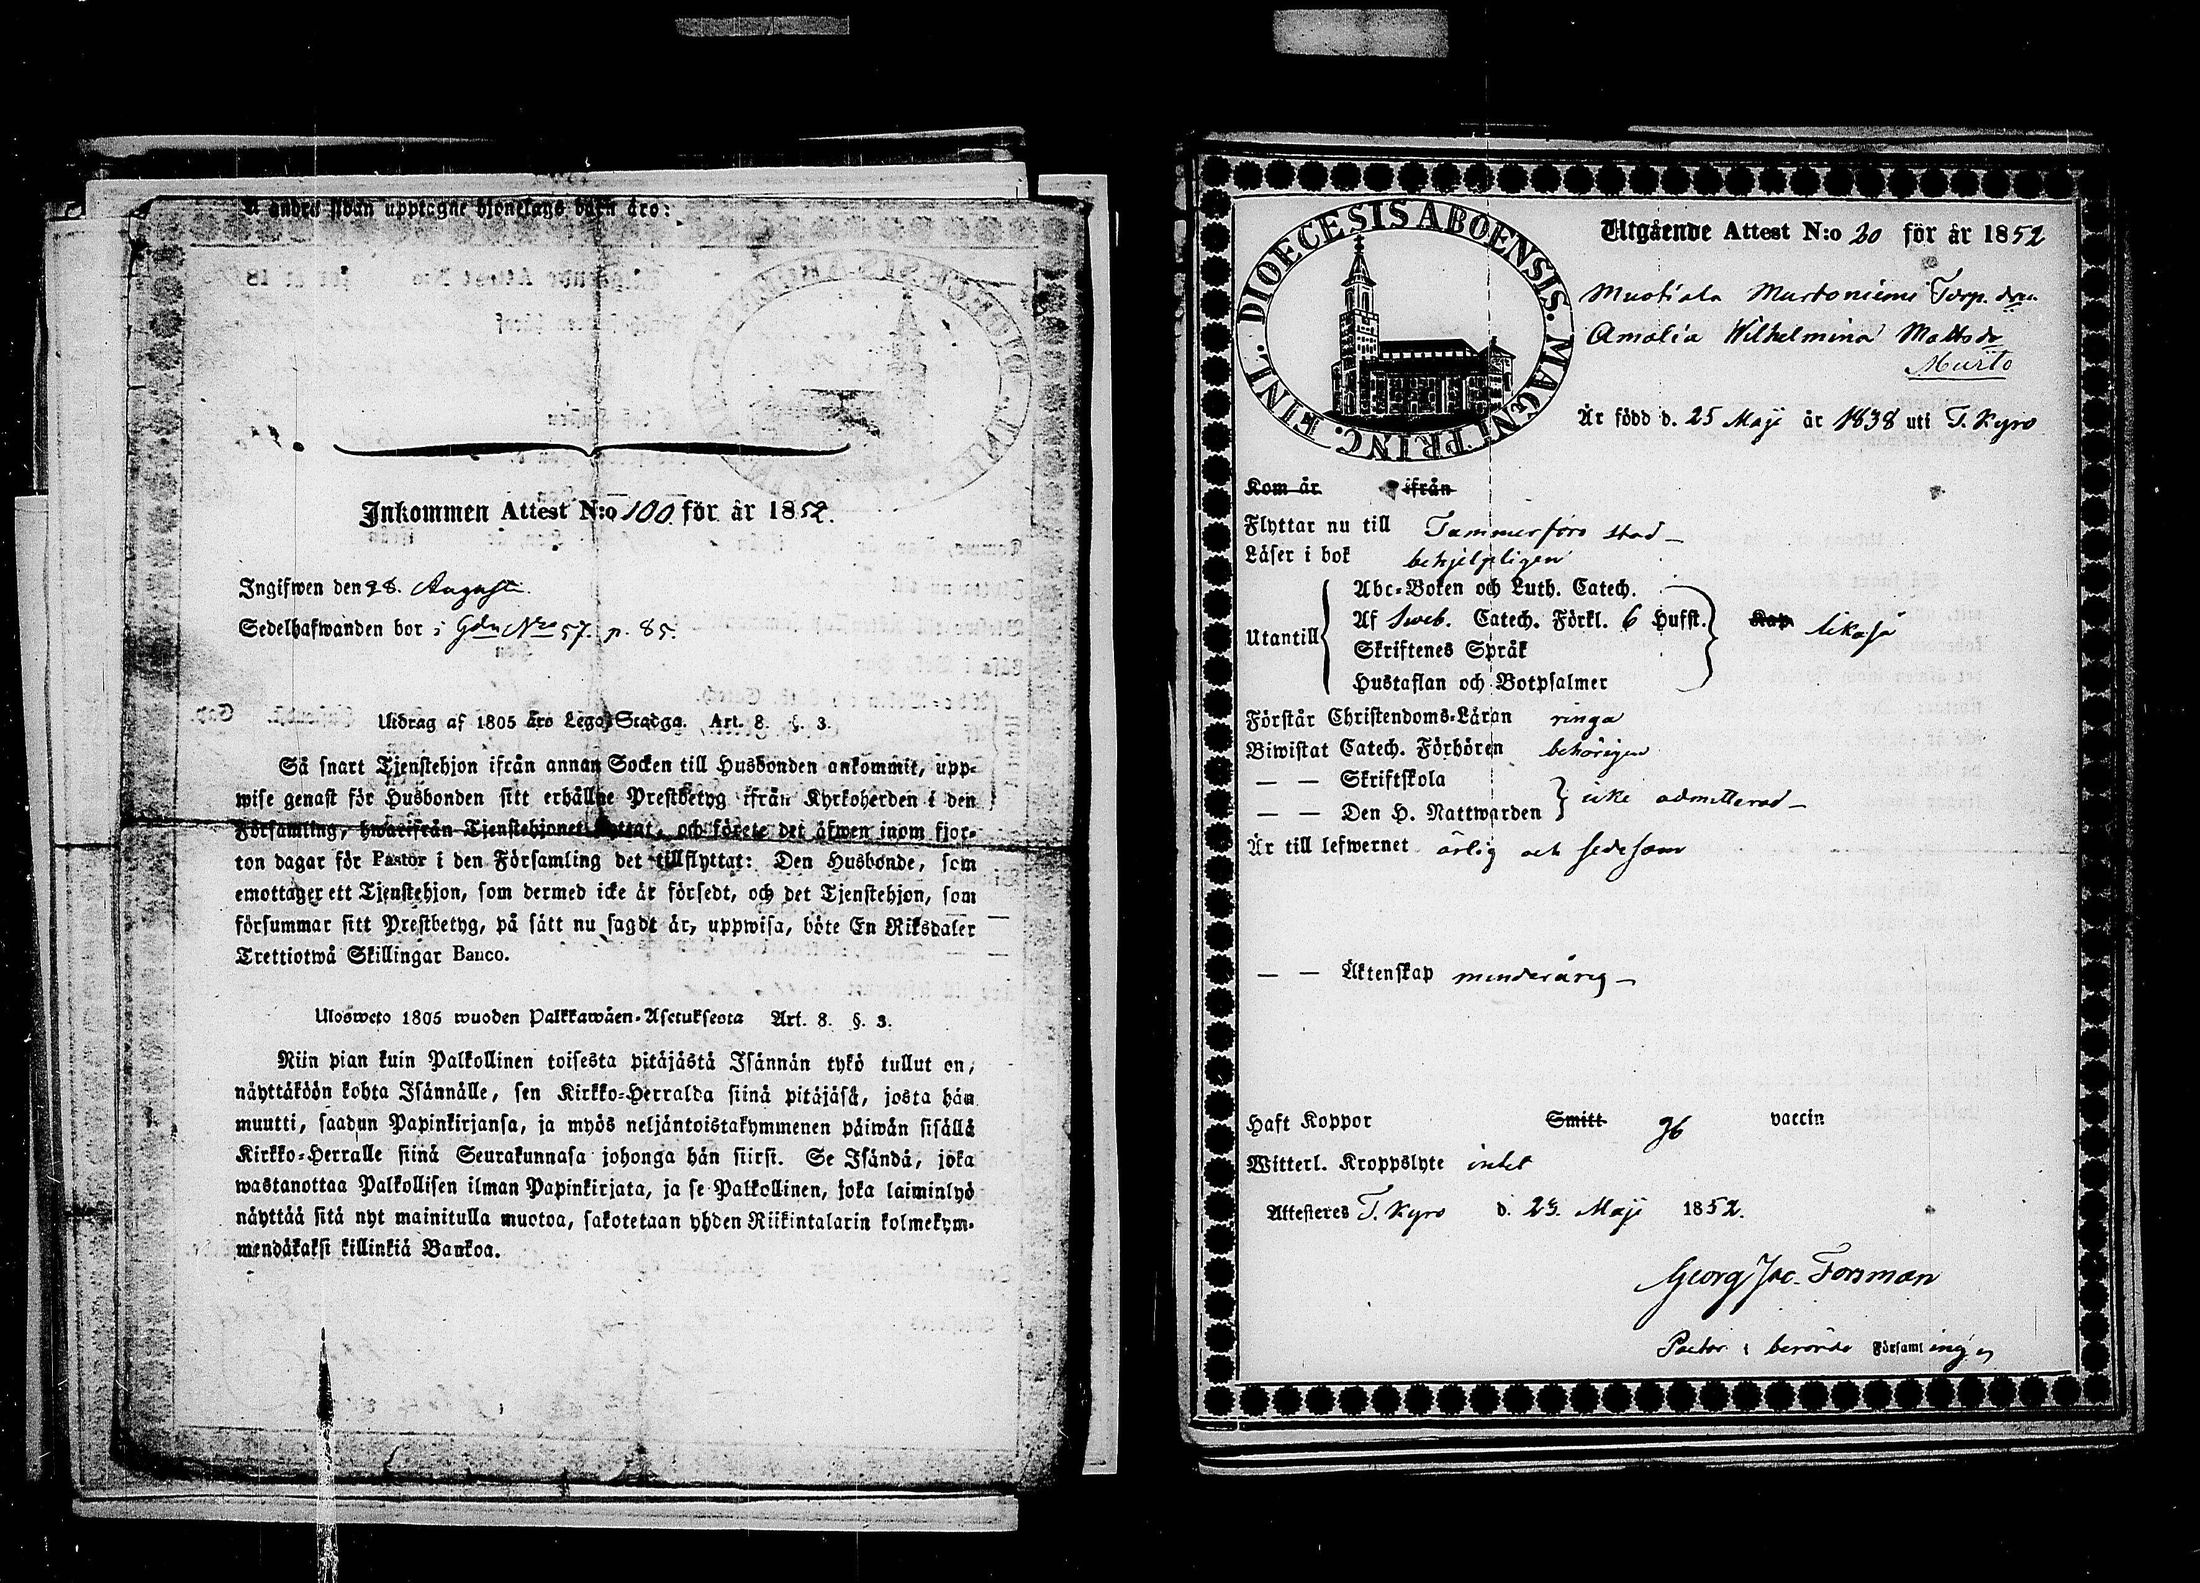 å andra sidan upptagne hjonelags barn äro:
Inkommen Attest N:o 100 för år 1852.
Ingifwen den 28. Augusti.
Sedelhafwanden bor i Gdn No 57. p. 85.
Utdrag af 1805 års Lego-Stadga. Art. 8. §. 3.
Så snart Tjenstehjon ifrån annan Socken till Husbonden ankommit, upp-
wise genast för Husbonden sitt erhållne Prestbetyg ifrån Kyrkoherden i den
Församling, hwarifrån Tjenstehjonet flyttat, och förete det äfwen inom fjor-
ton dagar för Pastor i den Församling det tillflyttat: Den Husbonde, som
emottager ett Tjenstehjon, som dermed icke är försedt, och det Tjenstehjon, som
försummar sitt Prestbetyg, på sätt nu sagdt är, uppwisa, böte En Riksdaler
Trettiotwå Skillingar Banco.
Ulosweto 1805 wuoden Palkkawäen-Asetuksesta Art. 8. §. 3.
Niin pian kuin Palkollinen toisesta pitäjästä Isännän tykö tullut on,
näyttäköön kohta Isännälle, sen Kirkko-Herralda siinä pitäjäsä, josta hän
muutti, saadun Papinkirjansa, ja myös neljäntoistakymmenen päiwän sisällä
Kirkko-Herralle siinä Seurakunnasa johonga hän siirsi. Se Isändä, joka
wastanottaa Palkollisen ilman Papinkirjata, ja se Palkollinen, joka laiminlyö
näyttää sitä nyt mainitulla muotoa, sakotetaan yhden Riikintalarin kolmekym-
mendäkaksi killinkiä Bankoa.
DIOECESIS ABOENSIS. MAGNI PRINC. FINL.
Utgående Attest N:o 20 för år 1852
Muotiala Murtoniemi Torp. dr.
Amalia Wilhelmina Matts dr
Murto
Är född d. 25 Maji år 1838 uti T. Kyro
Kom år ifrån
Flyttar nu till Tammerfors stad
Läser i bok behjelpligen
Abc-Boken och Luth. Catech.
Utantill Af Sweb. Catech. Förkl. 6 Hufst. Kap likaså
Skriftenes Språk
Hustaflan och Botpsalmer
Förstår Christendoms-Läran ringa
Biwistat Catech. Förhören behörigen
— — Skriftskola
— — Den H. Nattwarden icke admitterad
Är till lefwernet ärlig och sedesam
— — Äktenskap minderårig
Haft Koppor Smitt gb vaccin
Witterl. Kroppslyte intet
Attesteres T. Kyro d. 23. Maji 1852.
Georg Jac. Forsman
Pastor i berörde Församlingen